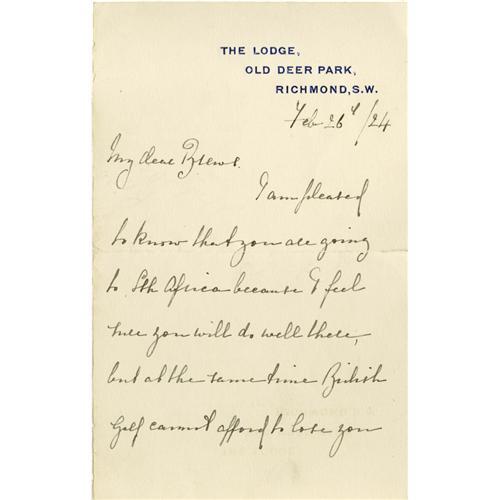 THE LODGE,
OLD DEER PARK,
RICHMOND, S.W.
Feb 26th/24
My dear Brews.
I am pleased
to know that you are going
to Sth Africa because I feel
sure you will do well there,
but at the same time British
Golf cannot afford to lose you